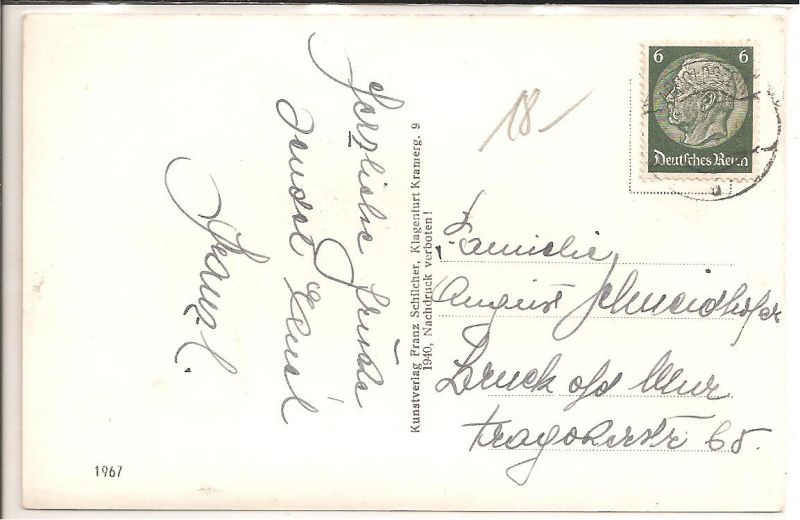 Herzliche Grüße
sendet Euch
Franzl.
Kunstverlag Franz Schilcher, Klagenfurt Kramerg. 9
1940, Nachdruck verboten!
18-
6 6
Deutsches Reich
Familie
August Schmeidhofer
Bruck a/d Mur
65.
1967